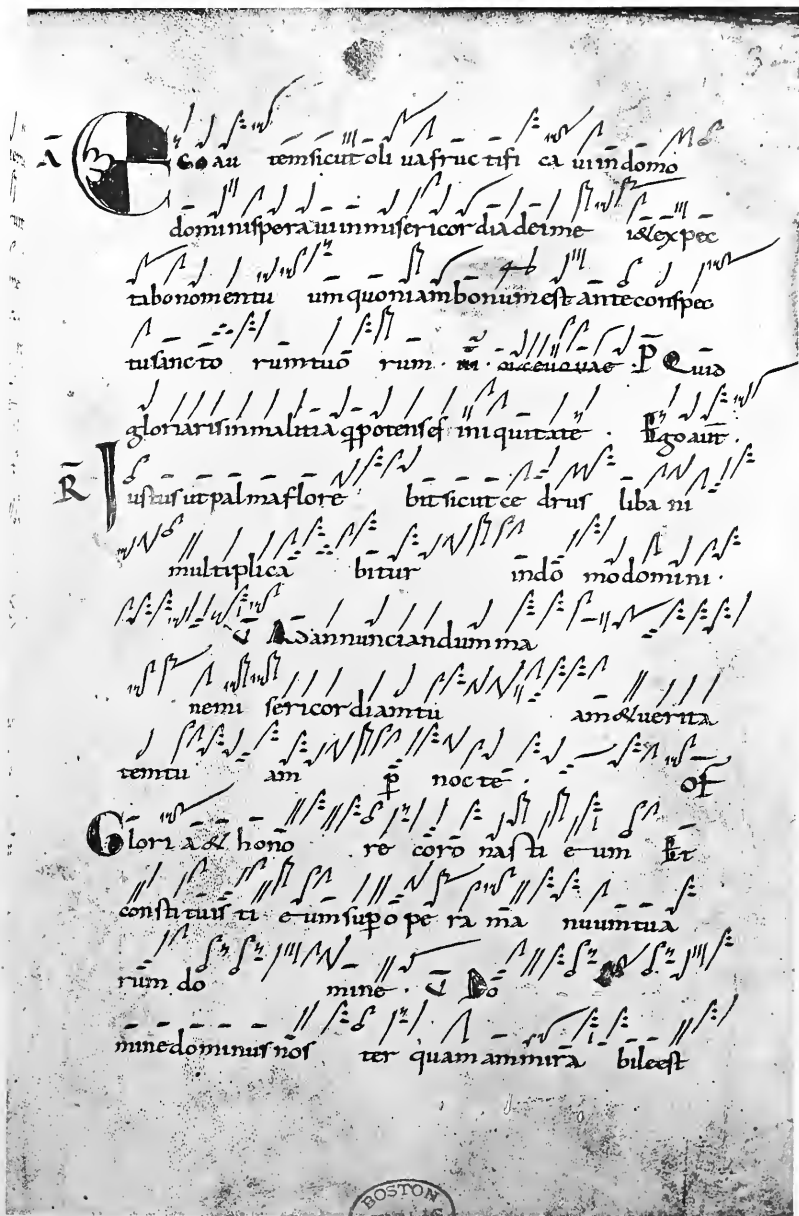 Ā EGO au tem sicut oli va fructifi ca vi in domo
domini speravi in misericordia dei me i & expec
tabo nomen tu um quoniam bonum est ante conspec
tu sancto rum tuō rum . P̄ Quid
gloriaris in malitia q potens es iniquitate . P̄ Ego aut̄ .
R̄ Iustus ut palma flore bit sicut ce drus liba ni
multiplica bitur in do mo domini .
V̄ Ad annunciandum ma
ne mi sericordiam tu am & verita
tem tu am p̄ noctē . OF
Glori a & hono re coro nasti e um Et
constituis ti eum sup̄ ope ra ma nuum tua
rum do mine . V̄ Do
mine dominus nos ter quam ammira bile est
BOSTON